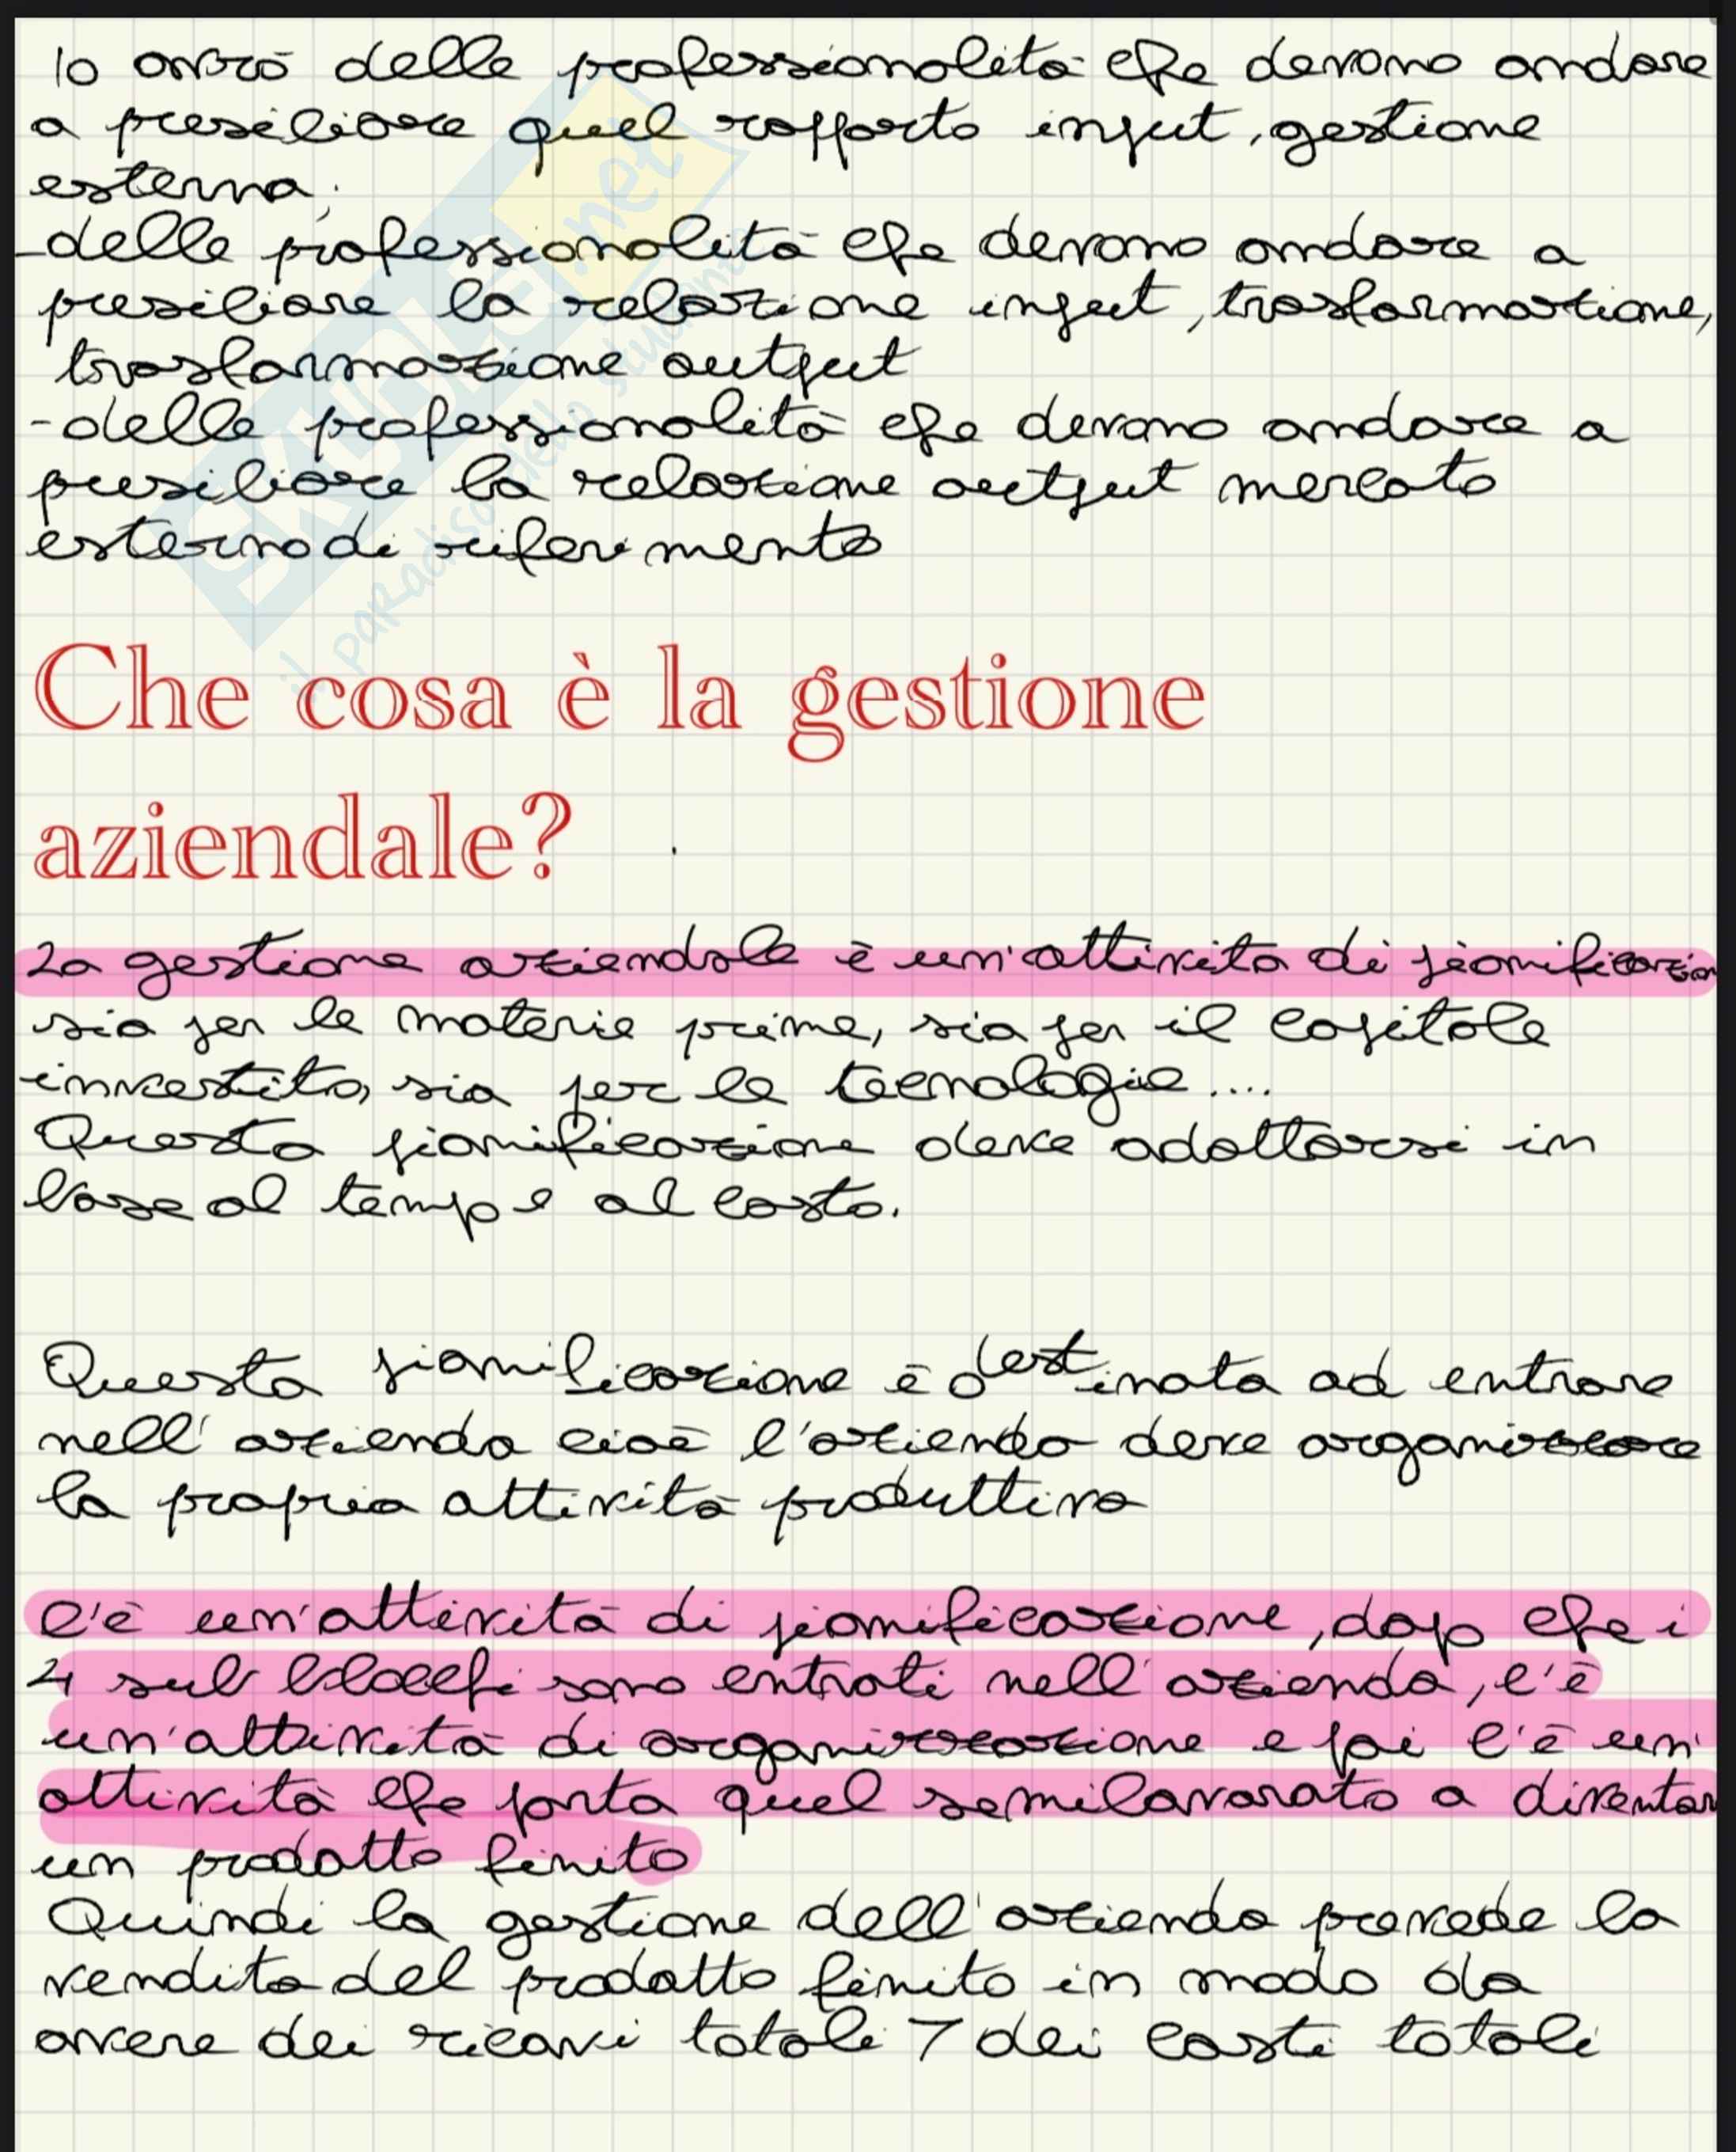 Io avrò delle professionalità che devono andare
a presiliare quel rapporto input, gestione
esterna;
-delle professionalità che devono andare a
presiliare la relazione input, trasformazione,
trasformazione output
-delle professionalità che devono andare a
presiliare la relazione output mercato
esterno di riferimento
Che cosa è la gestione
aziendale?
La gestione aziendale è un'attività di pianificazion
sia per le materie prime, sia per il capitale
investito, sia per le tecnologie....
Questa pianificazione deve adottarsi in
base al temp e al costo.
Questa pianificazione è destinata ad entrare
nell'azienda cioè l'azienda deve organizzare
la propria attività produttiva
C'è un'attività di pianificazione, dop che i
4 sub blocchi sono entrati nell'azienda, c'è
un'attività di organizzazione e poi c'è un'
attività che porta quel semilavorato a diventar
un prodotto finito
Quindi la gestione dell'azienda prevede la
vendita del prodotto finito in modo da
avere dei ricavi totali > dei costi totali
SKUOLA.net
il paradiso dello studente